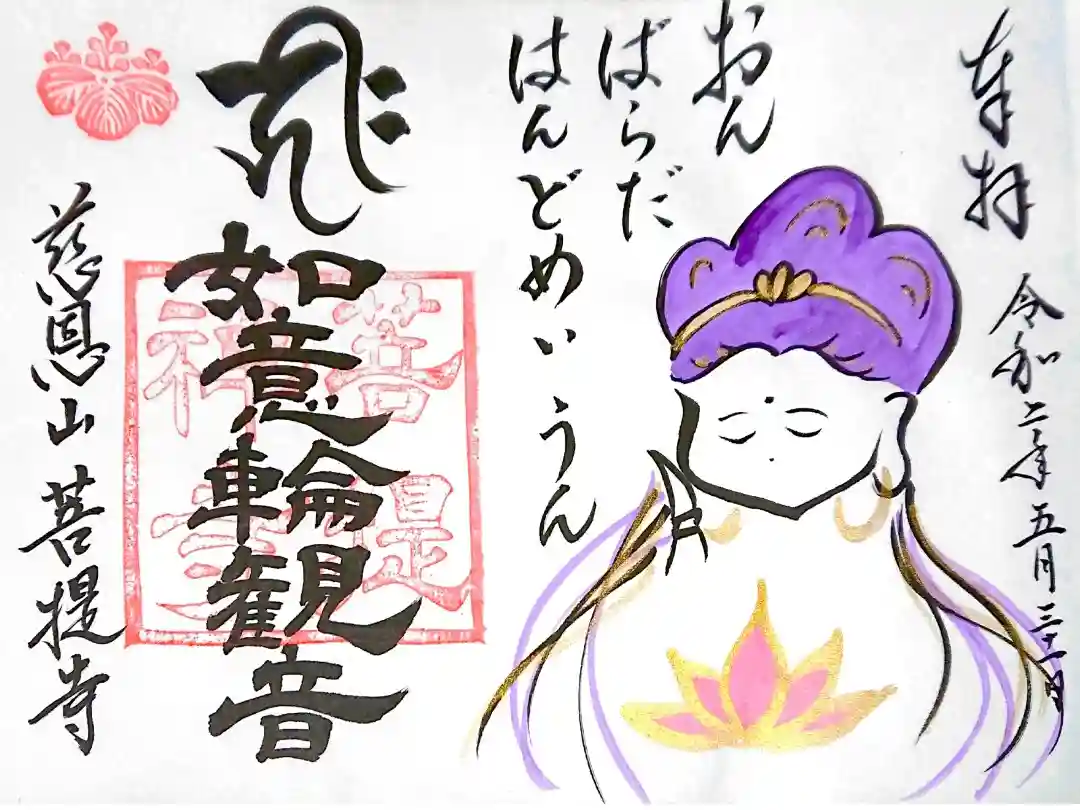 奉拝
令和二年五月三十一日
おん
ばらだ
はんどめいうん
如意輪観音
菩提
禅寺
慈恩山 菩提寺